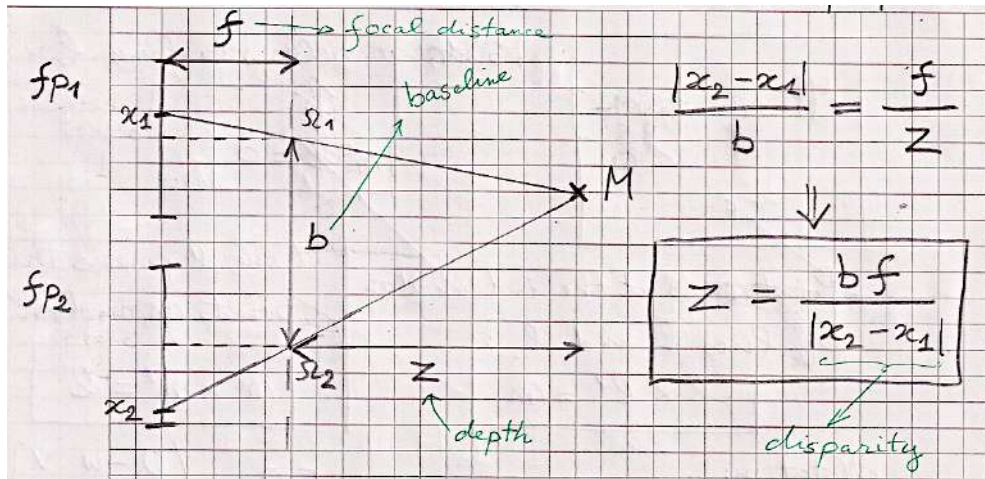 f → focal distance
fp₁
baseline
x₁
Ω₁
M
b
fp₂
Ω₂
Z
x₂
depth
|x₂ - x₁| / b = f / Z
⇓
Z = b f / |x₂ - x₁|
disparity